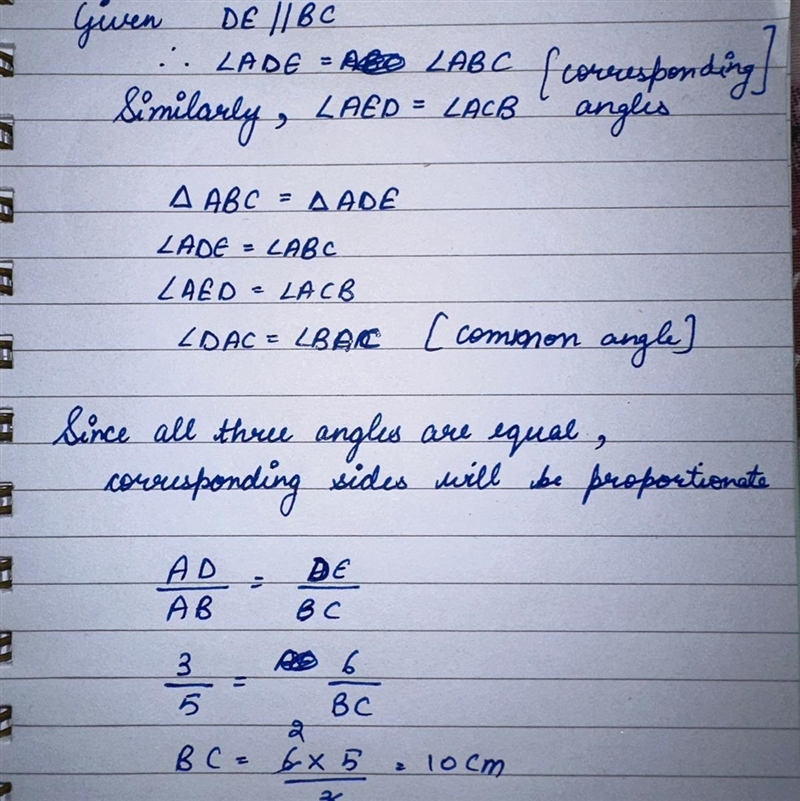 Given DE || BC
∴ ∠ADE = ∠ABC [corresponding]
Similarly, ∠AED = ∠ACB angles
Δ ABC = Δ ADE
∠ADE = ∠ABC
∠AED = ∠ACB
∠DAC = ∠BAC [common angle]
Since all three angles are equal,
corresponding sides will be proportionate
AD/AB = DE/BC
3/5 = 6/BC
2
BC = 6 × 5/3 = 10cm